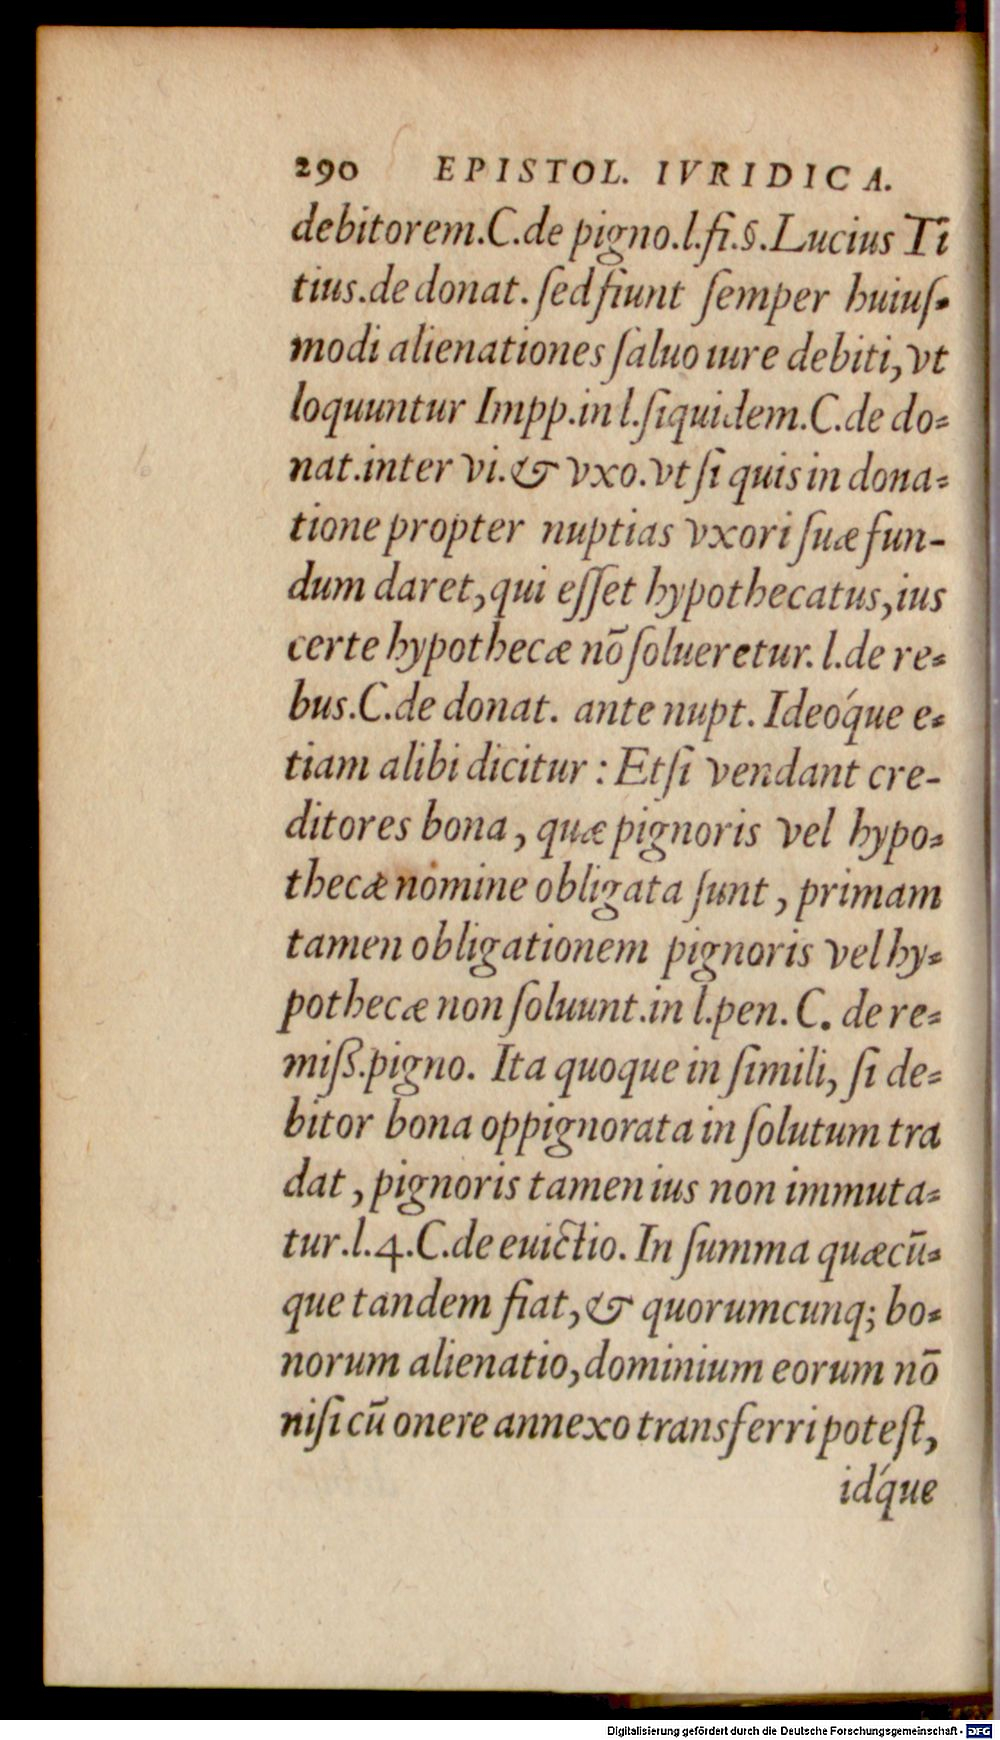 290 EPISTOL. IVRIDICA.
debitorem.C.de pigno.l.fi.§.Lucius Ti
tius.de donat. ſed fiunt ſemper huiuſ-
modi alienationes ſaluo iure debiti, vt
loquuntur Impp.in l.ſiquidem.C.de do-
nat.inter vi.& vxo.vt ſi quis in dona-
tione propter nuptias vxori ſuæ fun-
dum daret, qui eſſet hypothecatus, ius
certe hypothecæ nō ſolueretur. l.de re-
bus.C.de donat. ante nupt. Ideóque e-
tiam alibi dicitur : Etſi vendant cre-
ditores bona, quæ pignoris vel hypo-
thecæ nomine obligata ſunt, primam
tamen obligationem pignoris vel hy-
pothecæ non ſoluunt.in l.pen. C. de re-
miß.pigno. Ita quoque in ſimili, ſi de-
bitor bona oppignorata in ſolutum tra
dat, pignoris tamen ius non immuta-
tur.l.4.C.de euictio. In ſumma quæcū-
que tandem fiat, & quorumcunq; bo-
norum alienatio, dominium eorum nō
niſi cū onere annexo transferri poteſt,
id́que
Digitalisierung gefördert durch die Deutsche Forschungsgemeinschaft - DFG